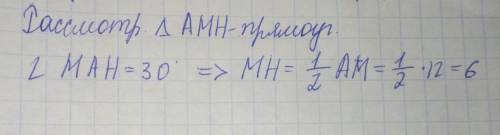 Рассмотр. △ AMH-прямоуг.
∠ MAH = 30° => MH = 1/2 AM = 1/2 · 12 = 6